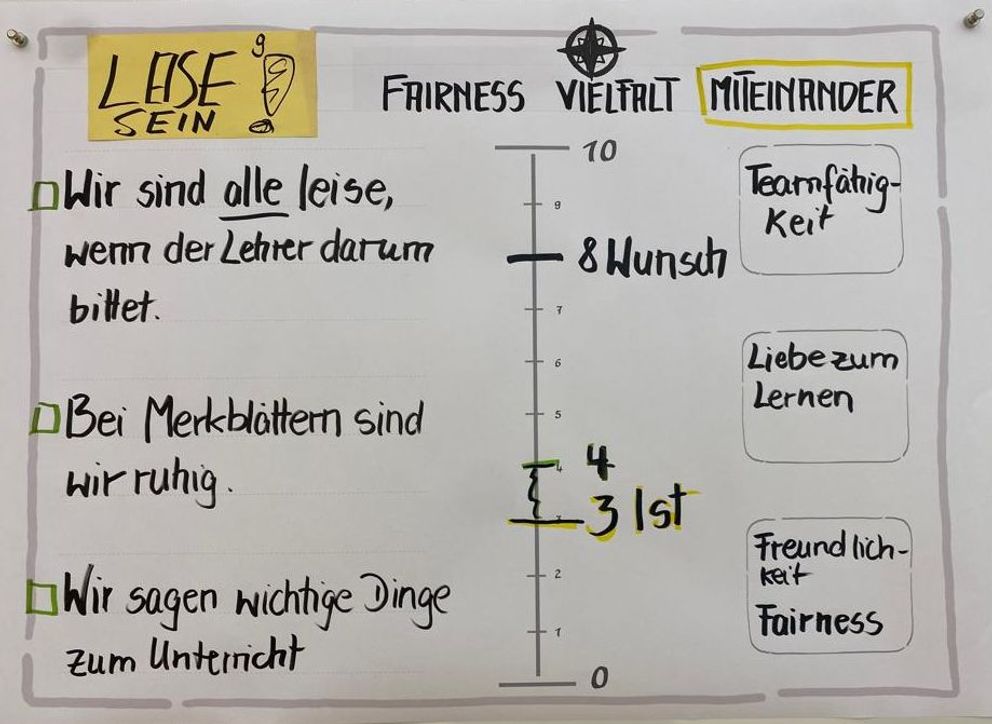 LEISE
SEIN
9
FAIRNESS VIELFALT MITEINANDER
Wir sind alle leise,
wenn der Lehrer darum
bittet.
Bei Merkblättern sind
wir ruhig.
Wir sagen wichtige Dinge
zum Unterricht
10
9
8 Wunsch
7
6
5
4
4
3 Ist
2
1
0
Teamfähig-
keit
Liebe zum
Lernen
Freundlich-
keit
Fairness